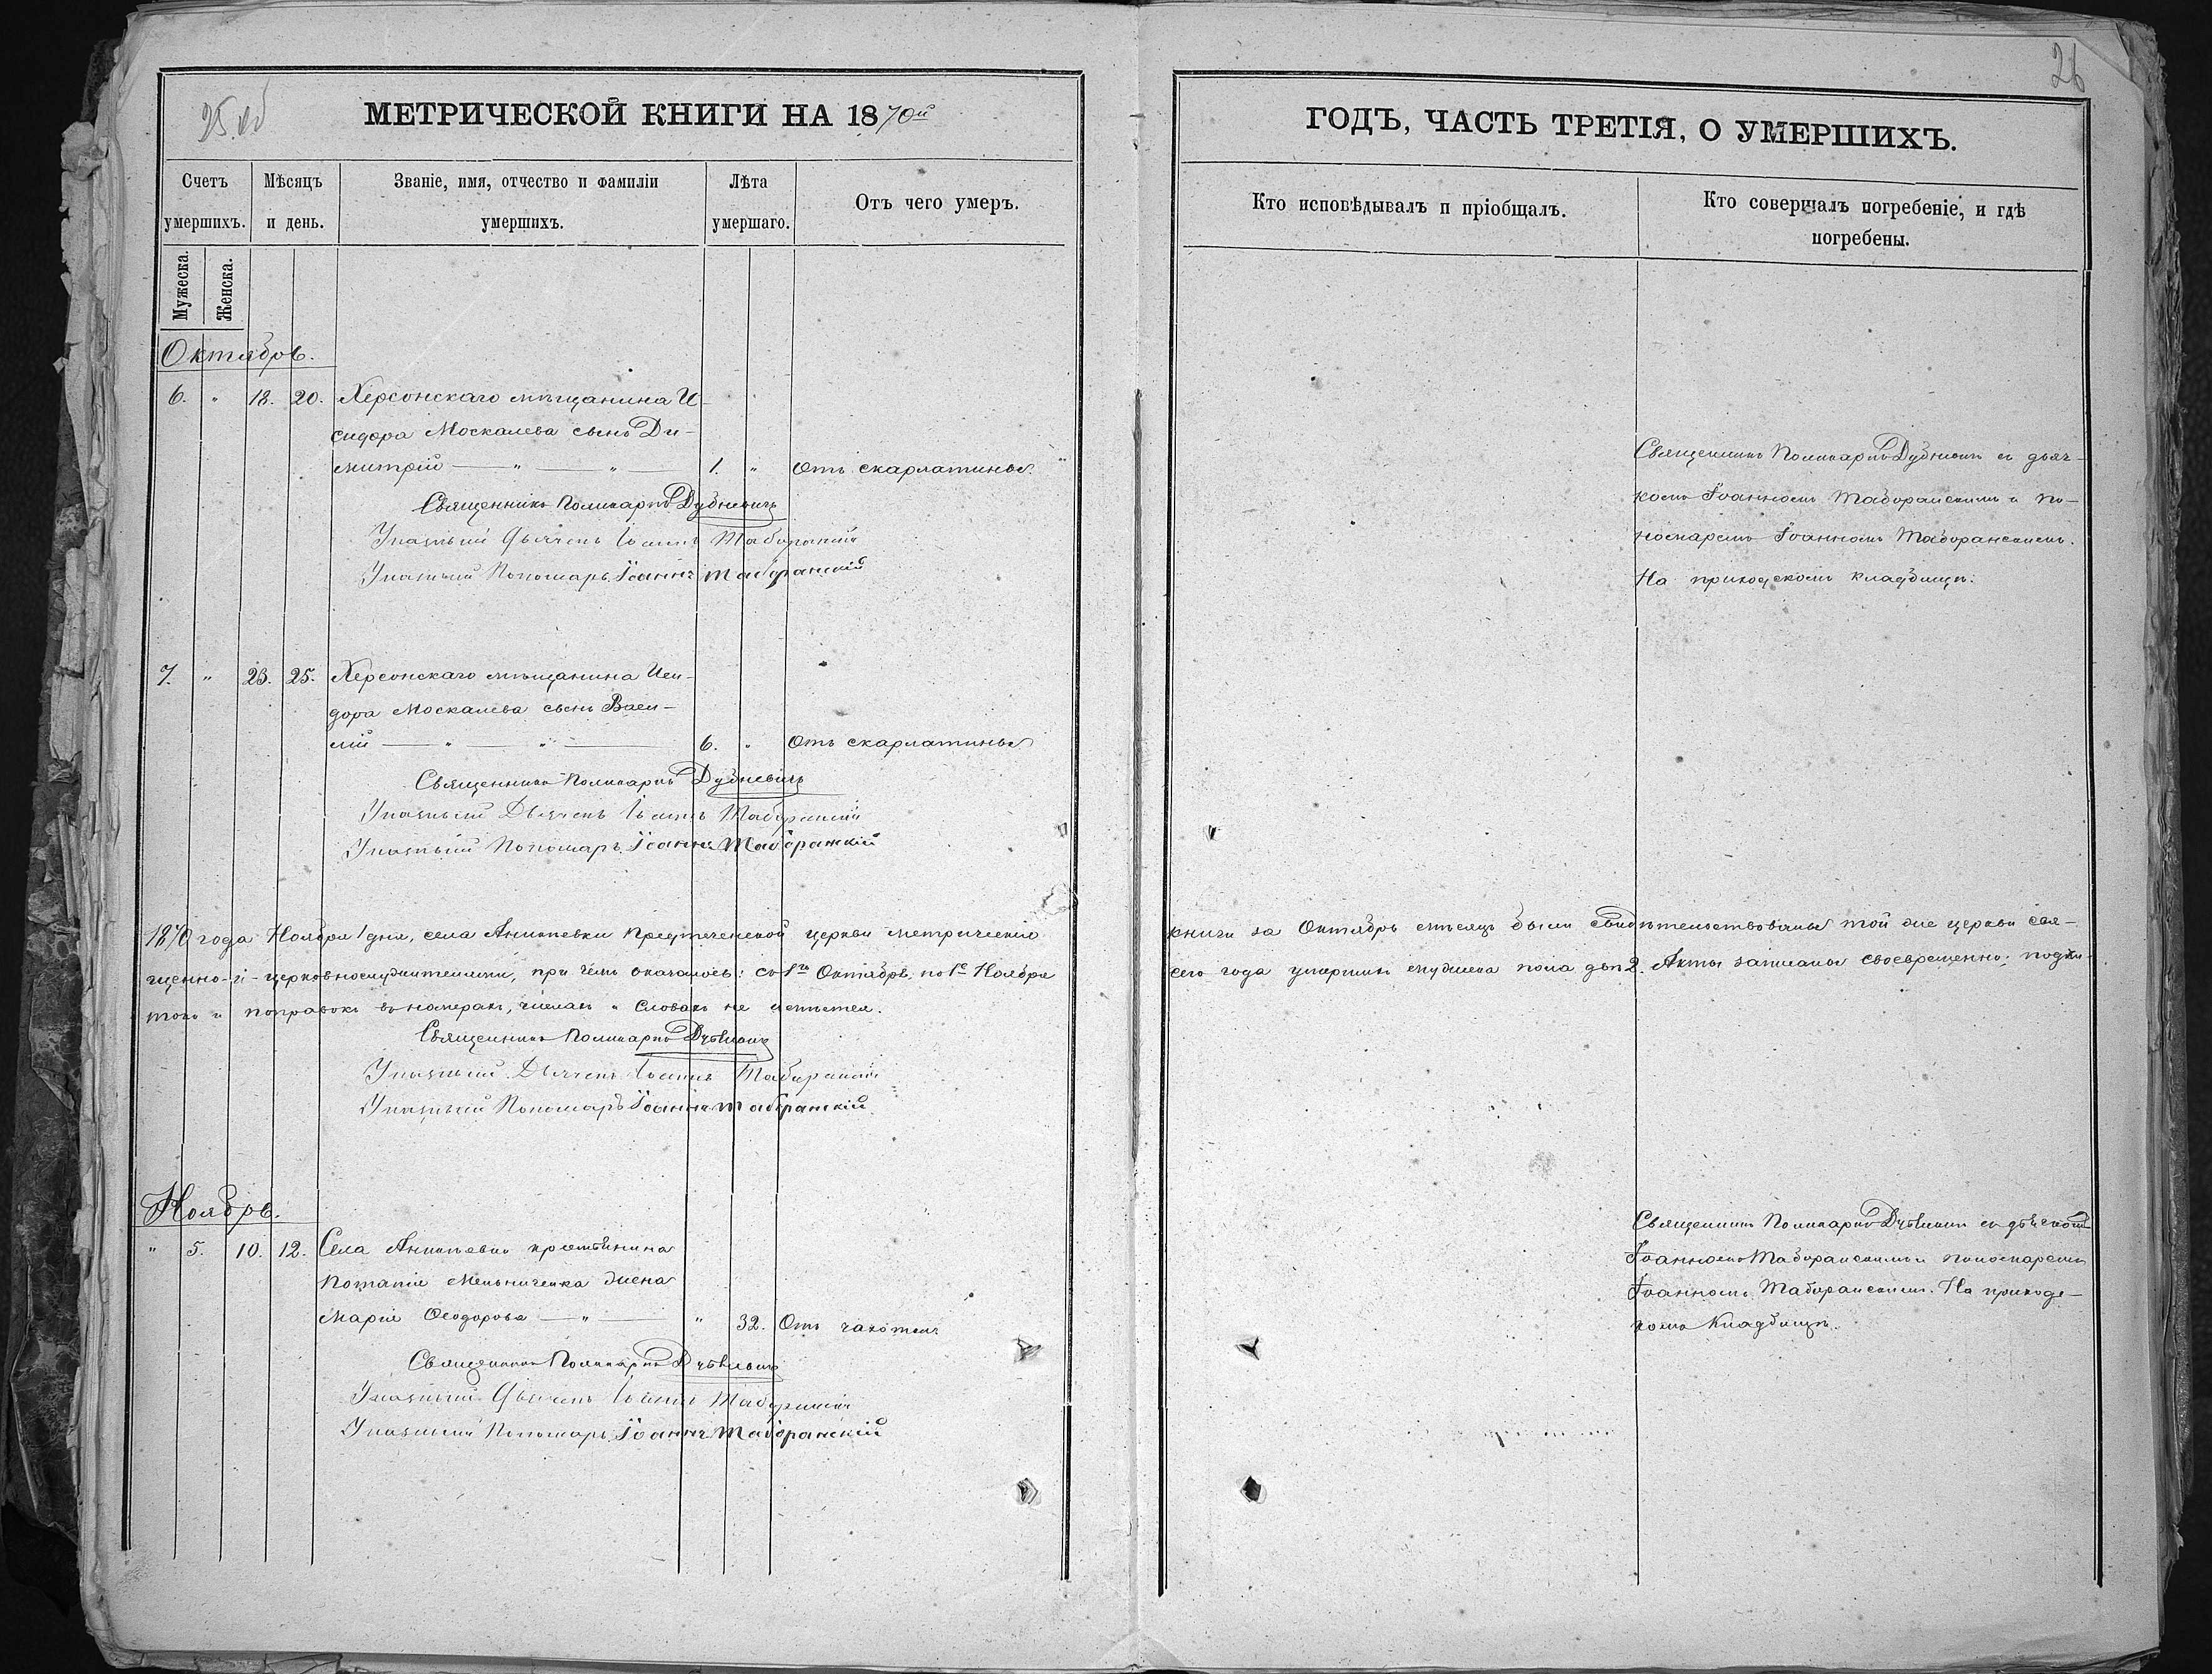 25 об
26
МЕТРИЧЕСКОЙ КНИГИ НА 1870й
ГОДЪ, ЧАСТЬ ТРЕТІЯ, О УМЕРШИХЪ.
Счетъ умершихъ.
Мѣсяцъ и день.
Званіе, имя, отчество и фамиліи умершихъ.
Лѣта умершаго.
Отъ чего умеръ.
Кто исповѣдывалъ и пріобщалъ.
Кто совершалъ погребеніе, и гдѣ погребены.
Мужеска.
Женска.
Октябрь.
6. " 18. 20. Херсонскаго мѣщанина И-
сидора Москалева сынъ Ди-
митрій — " — " — 1. " Отъ скарлатины
Священникъ Поликарпъ Дубневичъ
Указный Дьячекъ Іоаннъ Таборанскій
Указный Пономарь Іоаннъ Таборанскій
Священникъ Поликарпъ Дубневичъ съ дьяч-
комъ Іоанномъ Таборанскимъ и по-
номаремъ Іоанномъ Таборанскимъ.
На приходскомъ кладбищѣ.
7. " 23. 25. Херсонскаго мѣщанина Иси-
дора Москалева сынъ Васи-
лій — " — " — 6. " Отъ скарлатины
Священникъ Поликарпъ Дубневичъ
Указный Дьячекъ Іоаннъ Таборанскій
Указный Пономарь Іоаннъ Таборанскій
1870 года Ноября 1 дня, села Аникеевки Предтеченской церкви метрическія книги за Октябрь мѣсяцъ были свидѣтельствованы той же церкви свя-
щенно-и-церковнослужителями, при чемъ оказалось: съ 1го Октября по 1е Ноября сего года умершихъ мужеска пола два 2. Акты записаны своевременно; подчи-
токъ и поправокъ въ номерахъ, числахъ и словахъ не имѣется.
Священникъ Поликарпъ Дубневичъ
Указный Дьячекъ Іоаннъ Таборанскій
Указный Пономарь Іоаннъ Таборанскій
Ноябрь.
" 5. 10. 12. Села Аникеевки крестьянина
Потапія Мельниченка жена
Марія Ѳеодорова — " — " 32. Отъ чахотки
Священникъ Поликарпъ Дубневичъ
Указный Дьячекъ Іоаннъ Таборанскій
Указный Пономарь Іоаннъ Таборанскій
Священникъ Поликарпъ Дубневичъ съ дьячкомъ
Іоанномъ Таборанскимъ и пономаремъ
Іоанномъ Таборанскимъ. На приходс-
комъ Кладбищѣ.